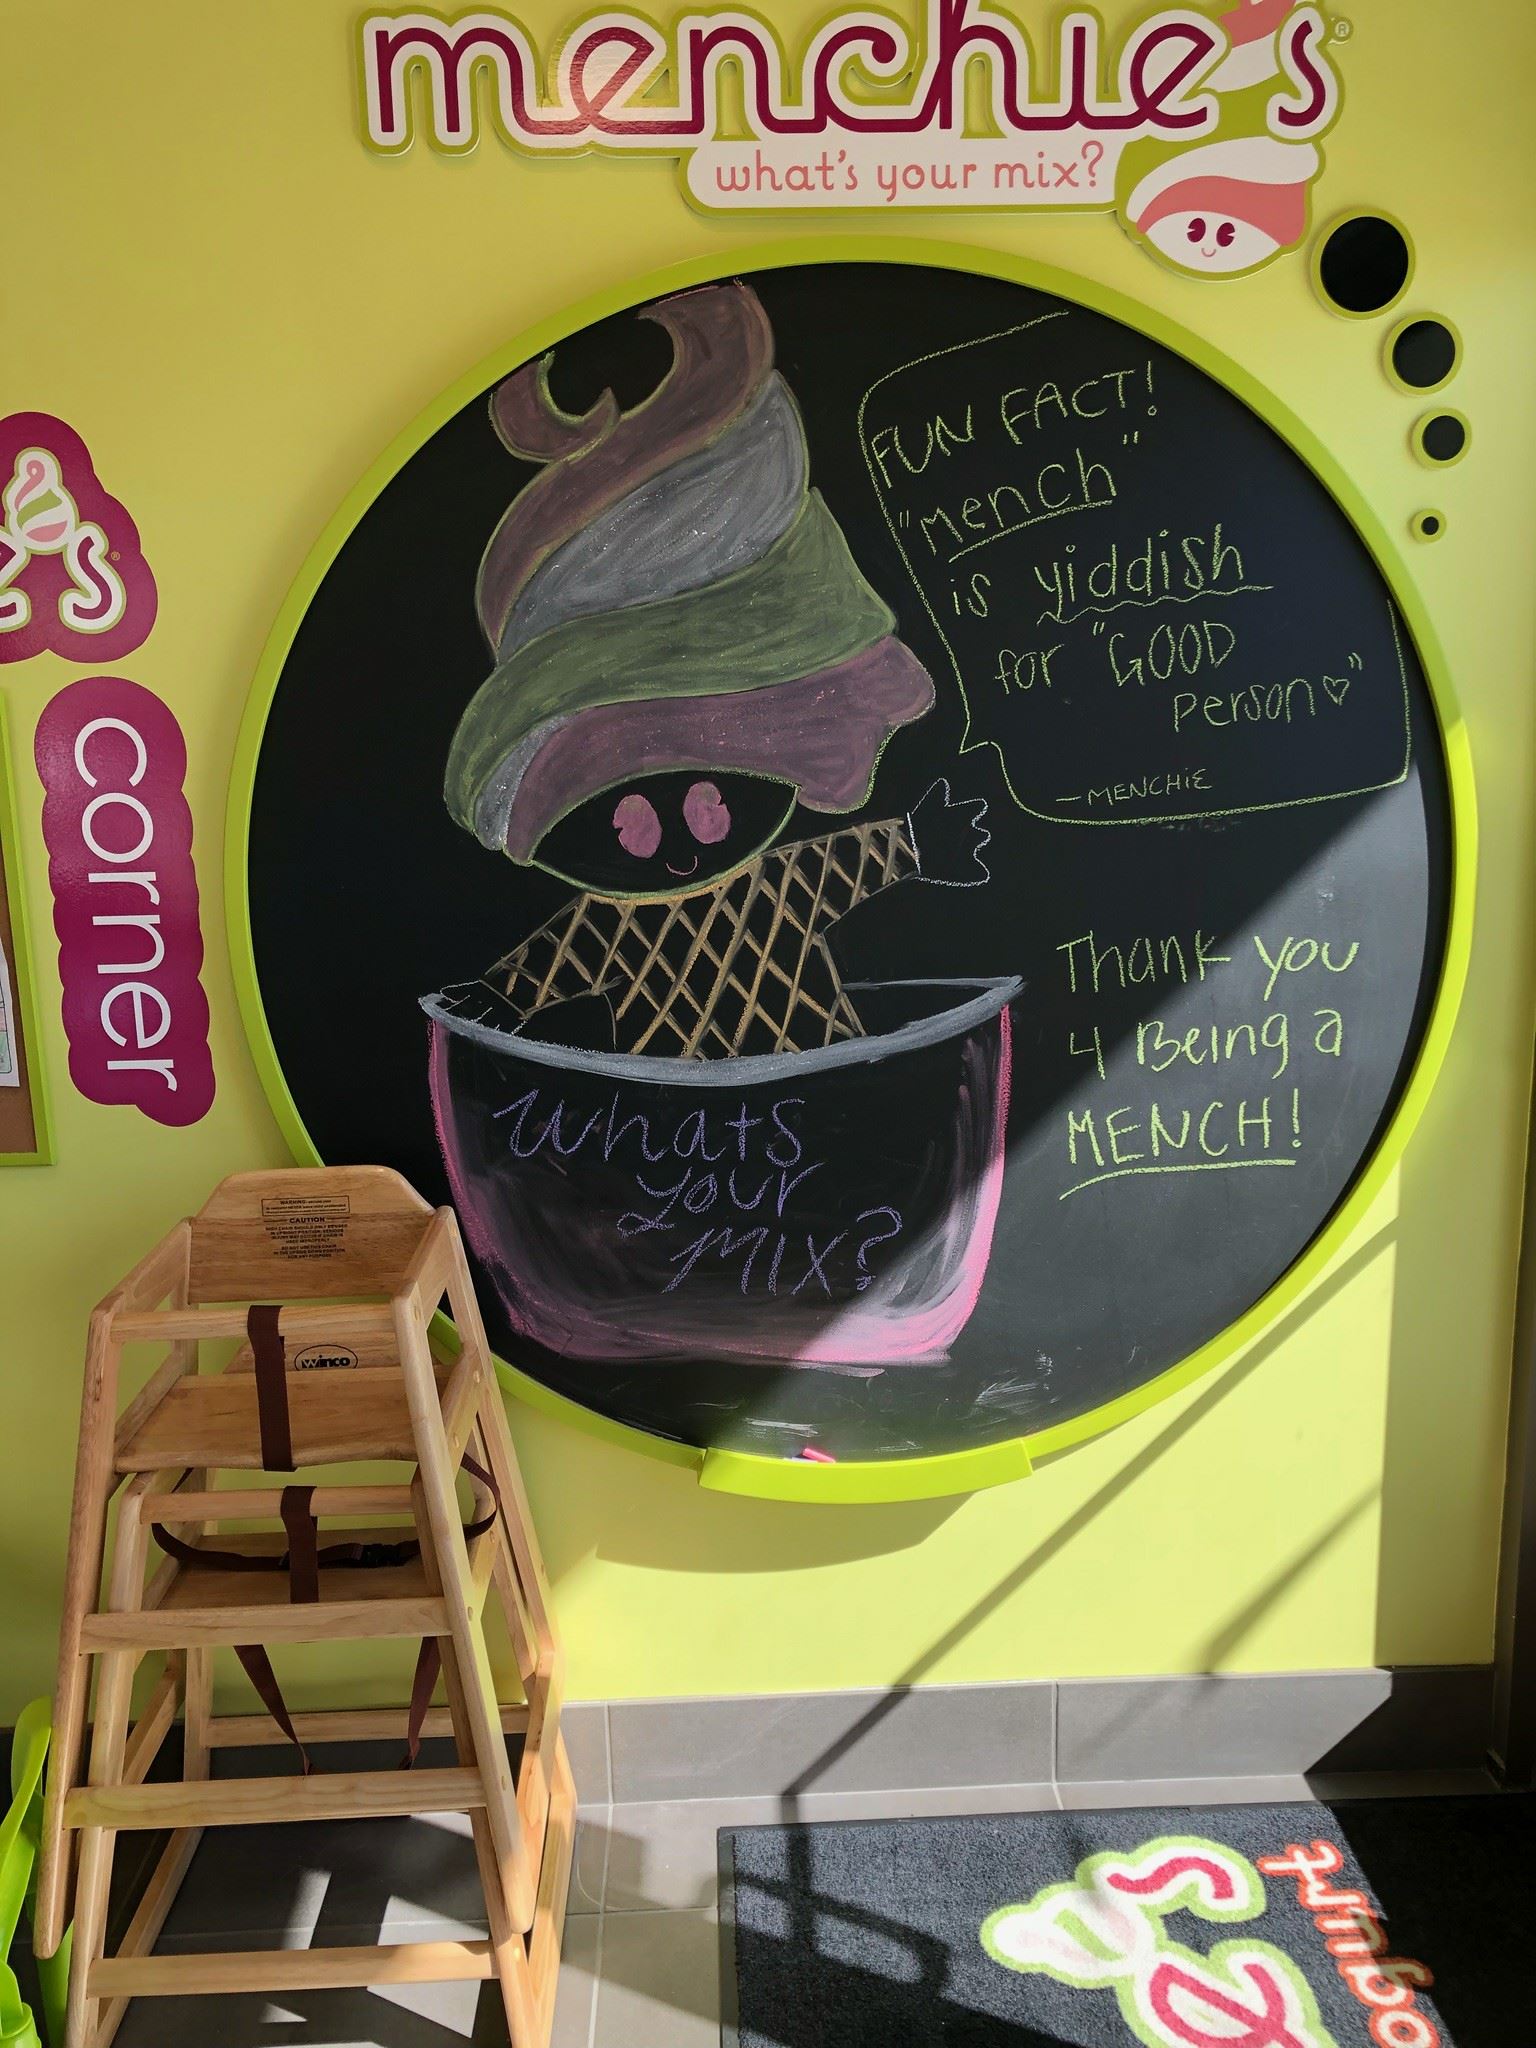 menchie's®
what's your mix?
FUN FACT!
"mench"
is yiddish
for "GOOD
person♡"
-MENCHIE
Thank you
4 Being a
MENCH!
whats
your
MIX?
's®
corner
CAUTION
winco